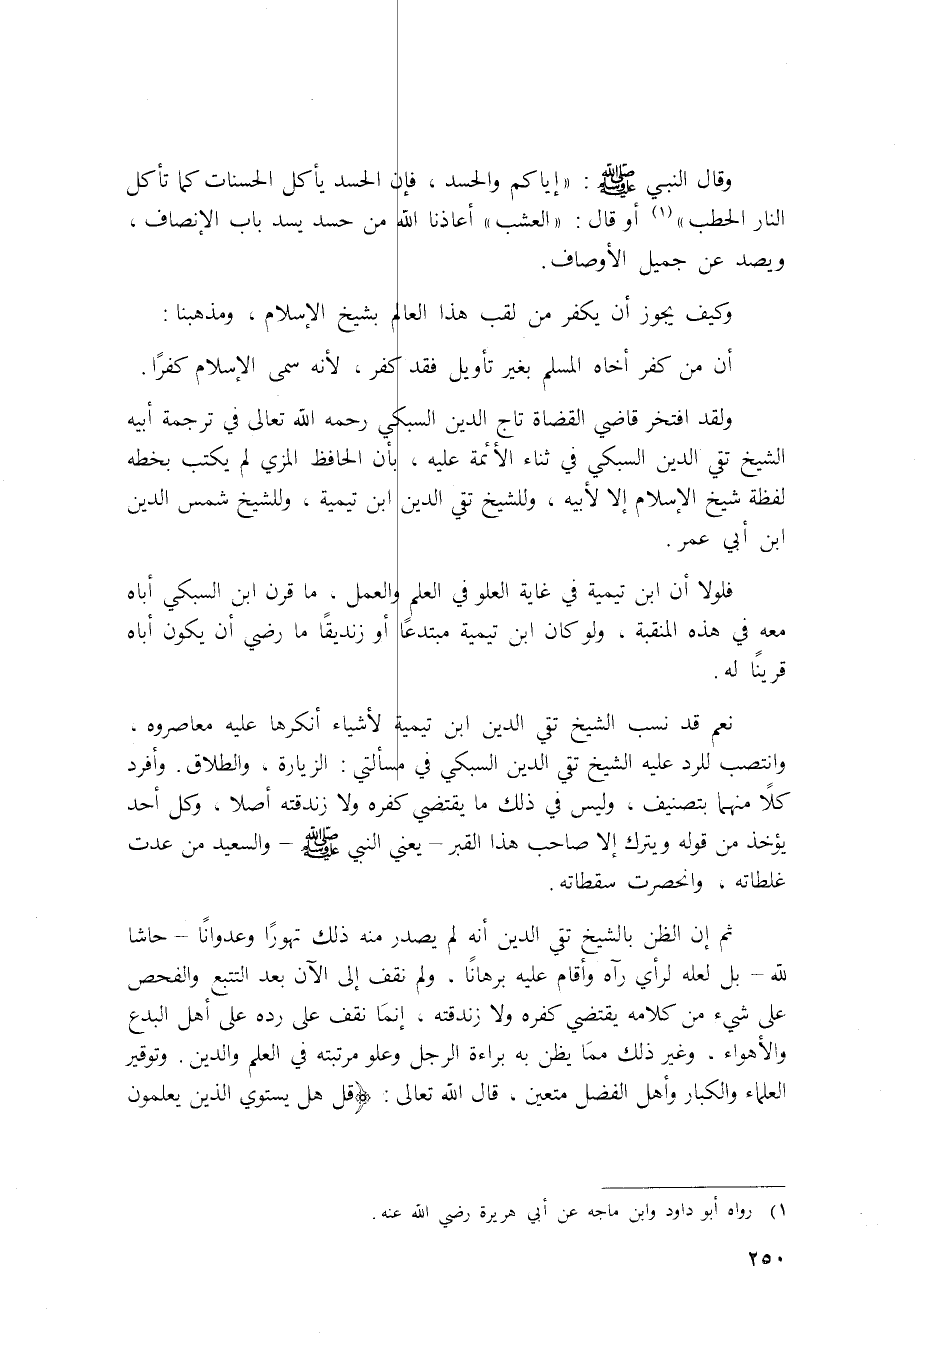 وقال النبي ﷺ : «إياكم والحسد ، فإن الحسد يأكل الحسنات كما تأكل
النار الحطب»(١) أو قال : «العشب» أعاذنا الله من حسد يسد باب الإنصاف ،
ويصد عن جميل الأوصاف.
وكيف يجوز أن يكفر من لقب هذا العالم بشيخ الإسلام ، ومذهبنا :
أن من كفر أخاه المسلم بغير تأويل فقد كفر ، لأنه سمى الإسلام كفرًا .
ولقد افتخر قاضي القضاة تاج الدين السبكي رحمه الله تعالى في ترجمة أبيه
الشيخ تقي الدين السبكي في ثناء الأئمة عليه ، بأن الحافظ المزي لم يكتب بخطه
لفظة شيخ الإسلام إلا لأبيه ، وللشيخ تقي الدين ابن تيمية ، وللشيخ شمس الدين
ابن أبي عمر .
فلولا أن ابن تيمية في غاية العلو في العلم والعمل ، ما قرن ابن السبكي أباه
معه في هذه المنقبة ، ولو كان ابن تيمية مبتدعًا أو زنديقًا ما رضي أن يكون أباه
قرينًا له .
نعم قد نسب الشيخ تقي الدين ابن تيمية لأشياء أنكرها عليه معاصروه ،
وانتصب للرد عليه الشيخ تقي الدين السبكي في مسألتي : الزيارة ، والطلاق. وأفرد
كلًا منهما بتصنيف ، وليس في ذلك ما يقتضي كفره ولا زندقته أصلا ، وكل أحد
يؤخذ من قوله ويترك إلا صاحب هذا القبر – يعني النبي ﷺ – والسعيد من عدت
غلطاته ، وانحصرت سقطاته.
ثم إن الظن بالشيخ تقي الدين أنه لم يصدر منه ذلك تهورًا وعدوانًا – حاشا
لله – بل لعله لرأي رآه وأقام عليه برهانًا . ولم نقف إلى الآن بعد التتبع والفحص
على شيء من كلامه يقتضي كفره ولا زندقته ، إنما نقف على رده على أهل البدع
والأهواء ، وغير ذلك مما يظن به براءة الرجل وعلو مرتبته في العلم والدين . وتوقير
العلماء والكبار وأهل الفضل متعين ، قال الله تعالى : ﴿قل هل يستوي الذين يعلمون
١) رواه أبو داود وابن ماجه عن أبي هريرة رضي الله عنه .
٢٥٠